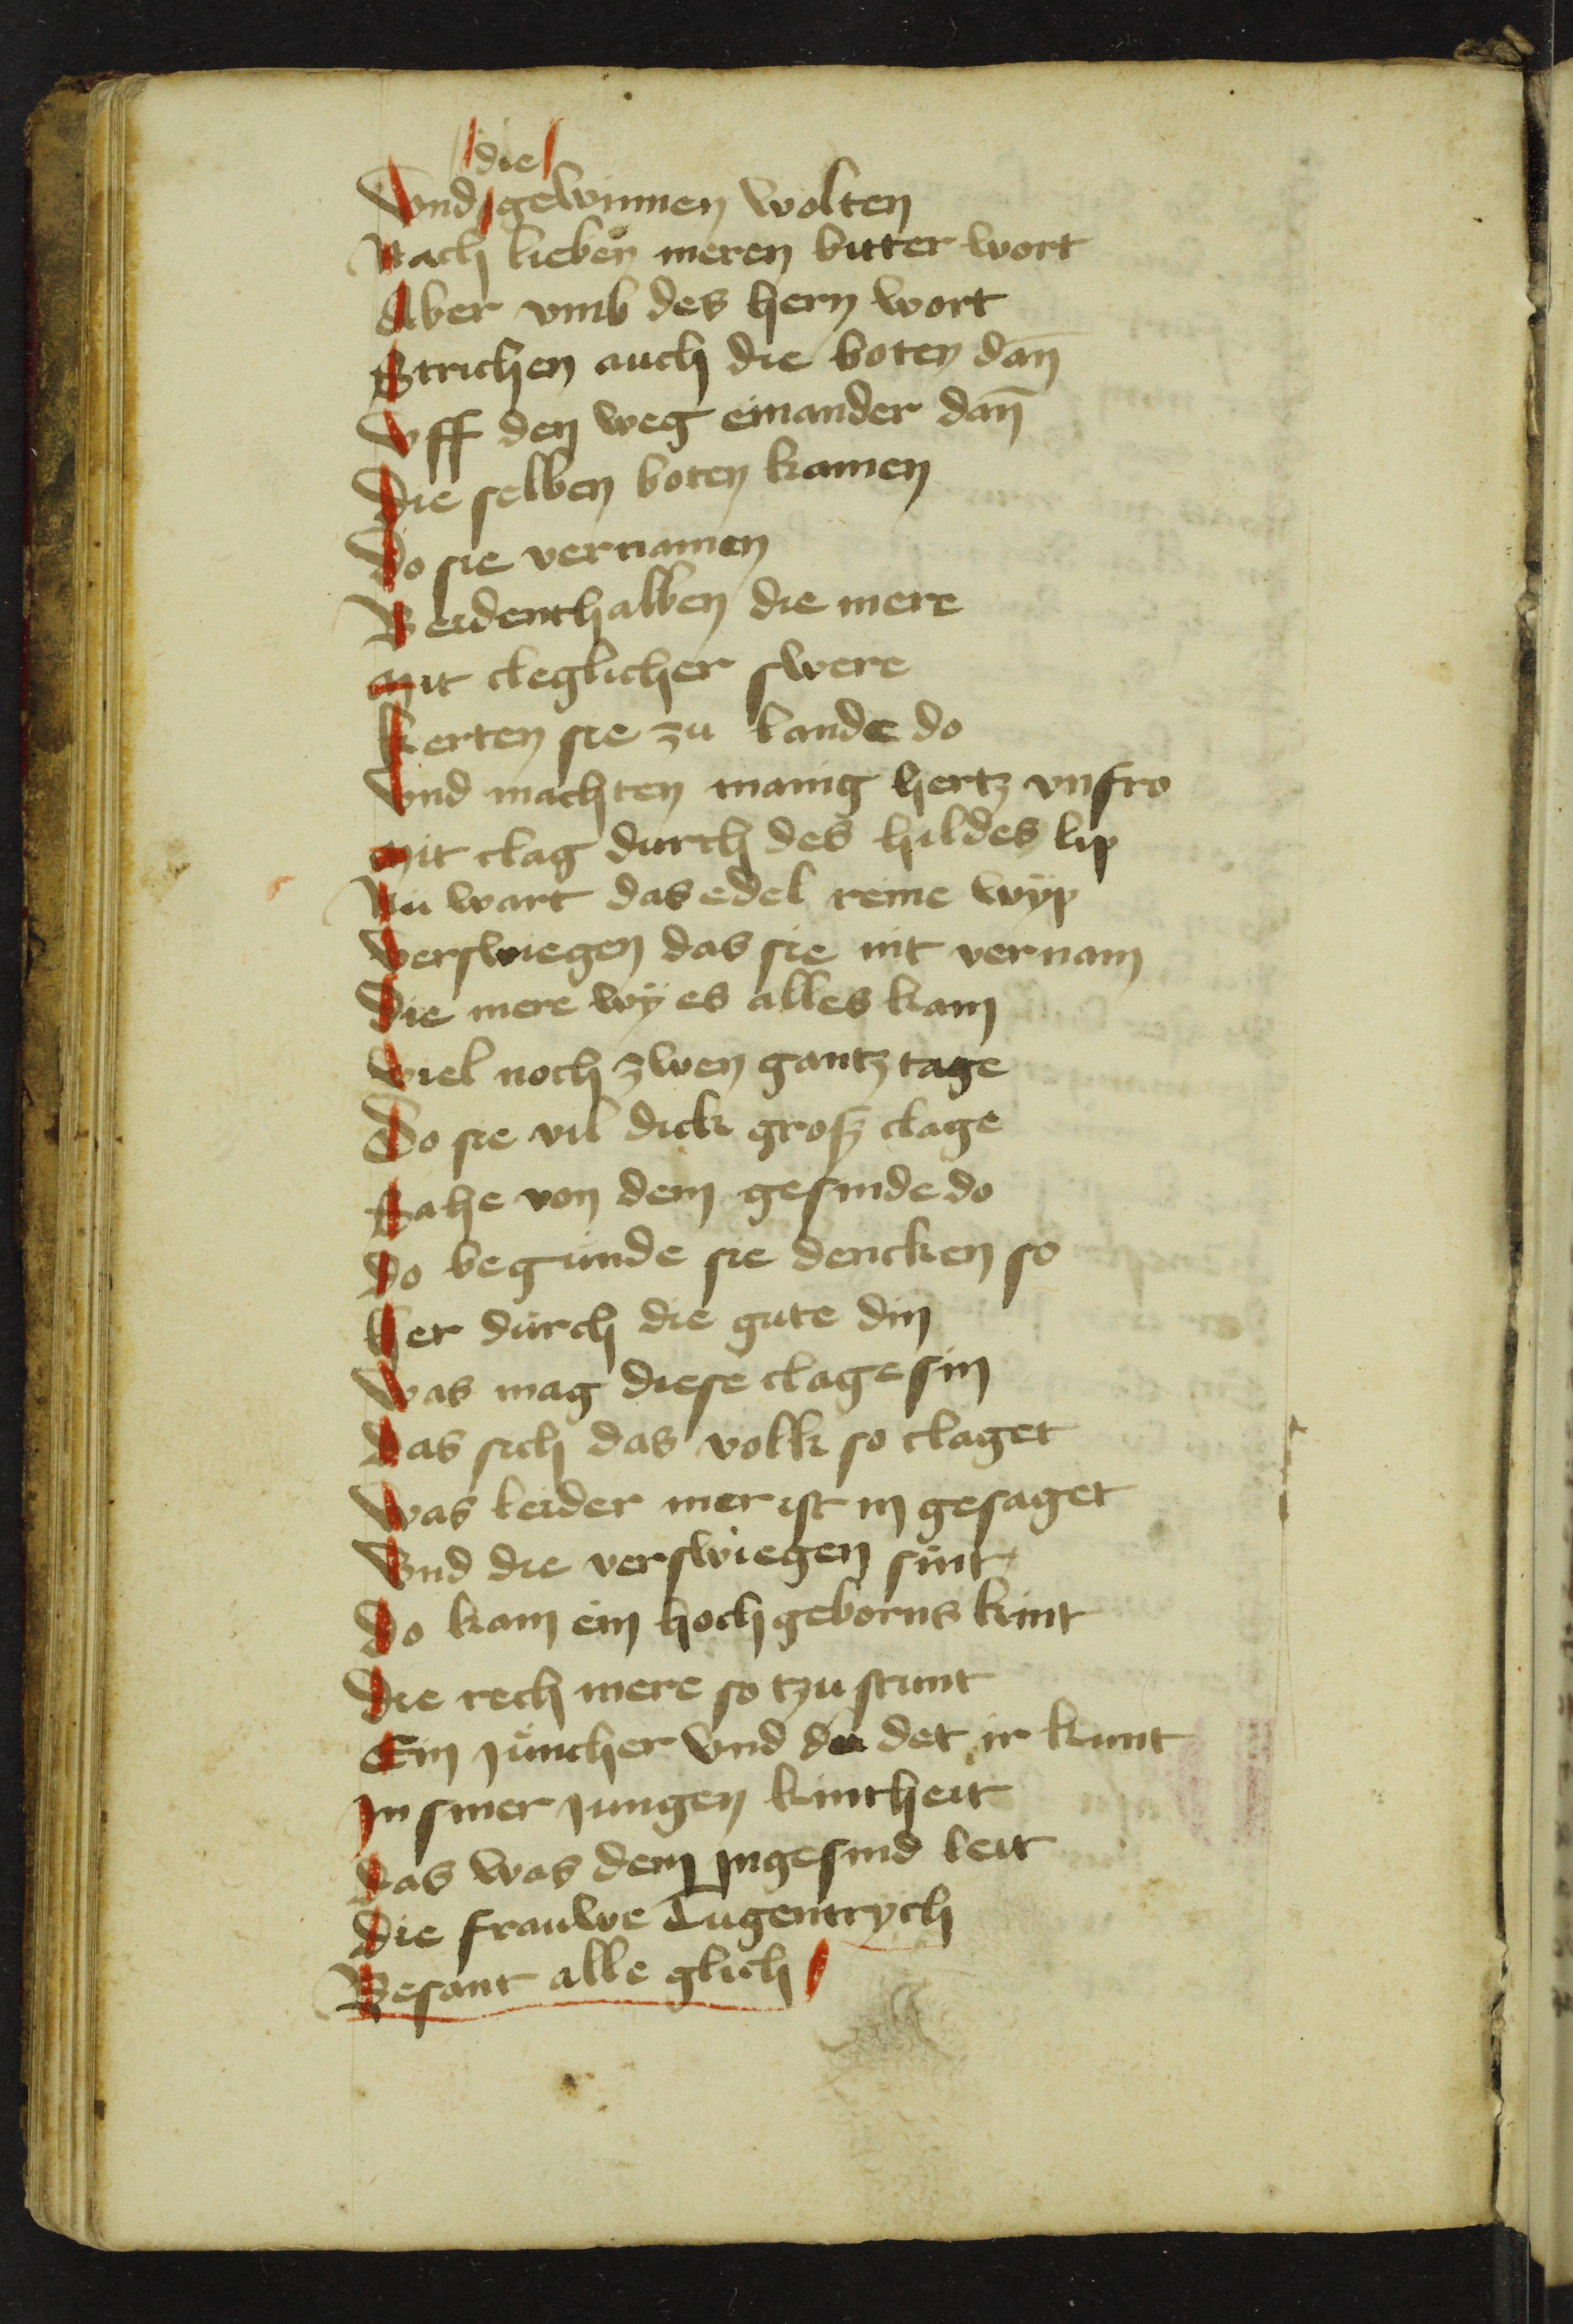 die
Vnd gewinnen wolten
Nach lieben meren bitter wort
Aber vmb des hern wort
Strichen auch die boten dan̄
Vff den weg einander dan̄
Die selben boten kamen
Do sie vernamen
Beidenthalben die mere
Mit cleglicher swere
Kerten sie zu lande do
Vnd machten manig hertz vnfro
Mit clag durch des hildes lip
Nu wart das edel reine wÿp
Verswiegen das sie nit vernam
Die mere wÿ es alles kam
Viel noch zwen gantz tage
Do sie vil dick groß clage
Sahe von dem gesinde do
Do begunde sie dencken so
Her durch die gute din
Was mag diese clage sin
Das sich das volk so claget
Was leider mer ist in gesaget
Vnd die verswiegen sint
Do kam ein hochgeborns kint
Die rech mere so tzu stunt
Ein juncher vnd det ir kunt
In siner jungen kintheit
Das was dem ingesind leit
Die frauwe Tugentrych
Besant alle glich